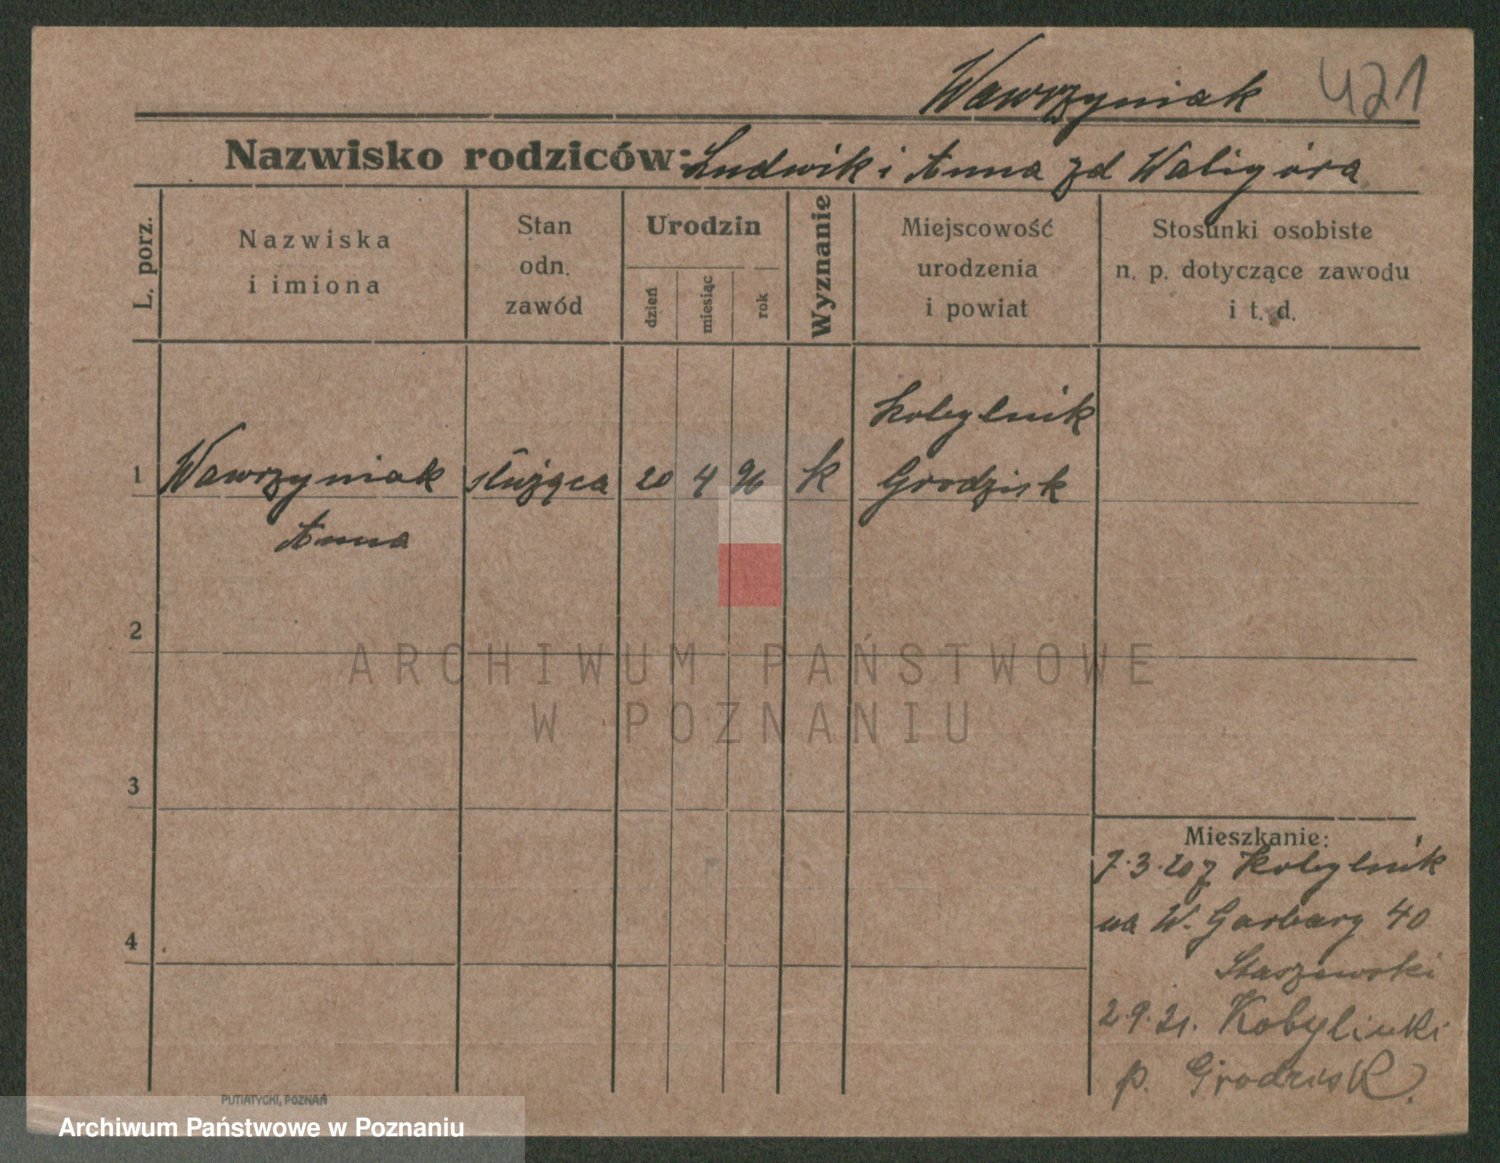 Wawrzyniak 421
Nazwisko rodziców: Ludwik i Anna zd Waligóra
L. porz.
Nazwiska
i imiona
Stan
odn.
zawód
Urodzin
dzień
miesiąc
rok
Wyznanie
Miejscowość
urodzenia
i powiat
Stosunki osobiste
n. p. dotyczące zawodu
i t. d.
Kobylnik
1 Wawrzyniak służąca 20 4 96 k Grodzisk
Anna
2
ARCHIWUM PAŃSTWOWE
W POZNANIU
3
4
Mieszkanie:
7.3.20 z Kobylnik
na W. Garbary 40
Staszewski
2.9.21. Kobylniki
p. Grodzisk
PUTIATYCKI, POZNAŃ
Archiwum Państwowe w Poznaniu